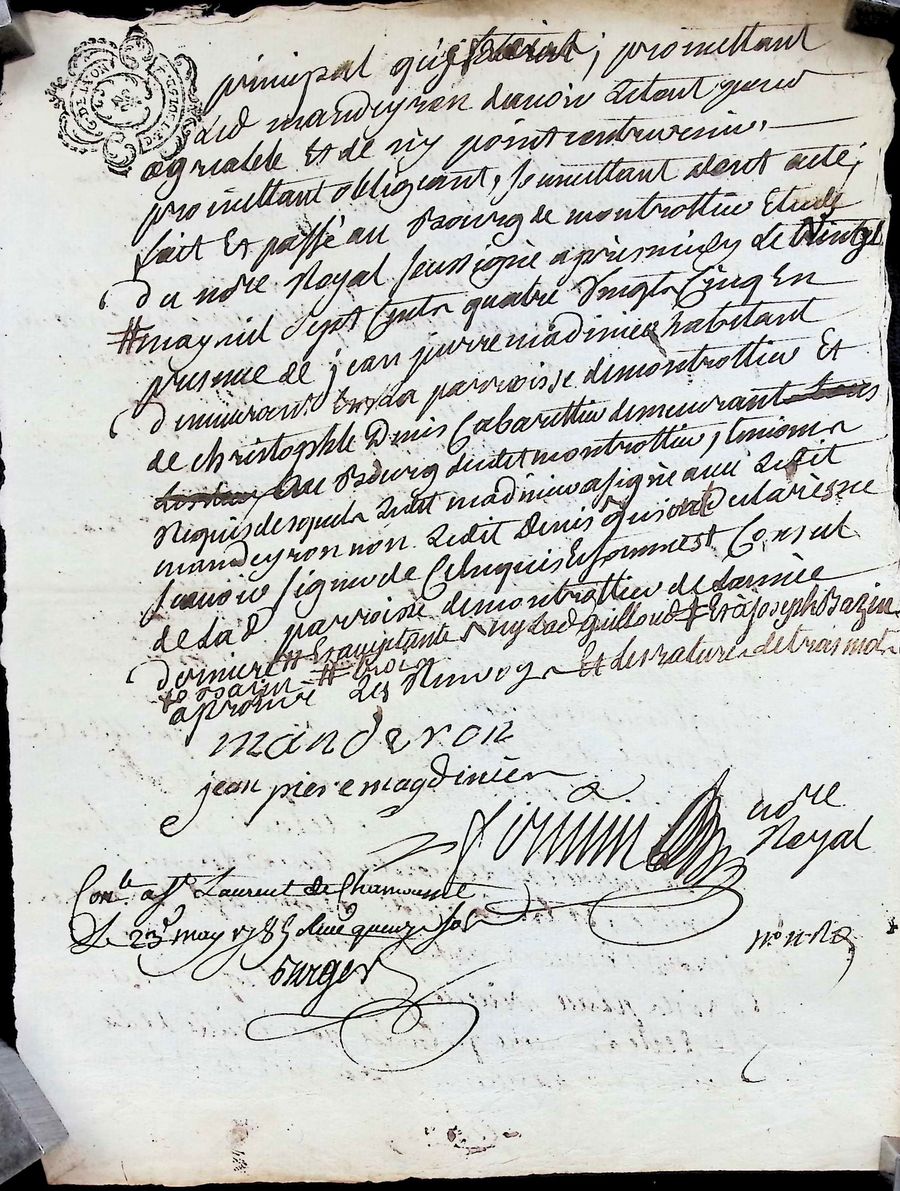 G. DE LYON
principal qu'interest ; promettant
led mandeyron d'avoir le tout pour
agreable Et de n'y point contrevenir,
promettant obligeant, soumettant dont acte,
fait Et passé au Bourg de montrottier Etude
du nore Royal soussigné apres midy le Vingt
# may mil sept Cents quatre Vingts Cinq En
presence de jean pierre madinier habitant
demeurant En la parroisse de montrottier Et
de christophle Denis Cabarettier demeurant
au Bourg dudit montrottier, temoins
Requis desquels ledit madinier a signé avec ledit
mandeyron non ledit Denis qui ont déclaré ne
scavoir signer de Ce Enquis Et sommés Consul
de lad parroisse de montrottier de l'année
derniere # Et acceptante ny lad guilloud ‡ Et a joseph Bazin
‡ Bazin # trois
aprouvé les Renvoys Et les ratures de trois mots
manderon
jean piere magdinier
nore
Royal
Conle a St Laurent de Chamousset
Le 23e may 1785 quinze sols
Burger